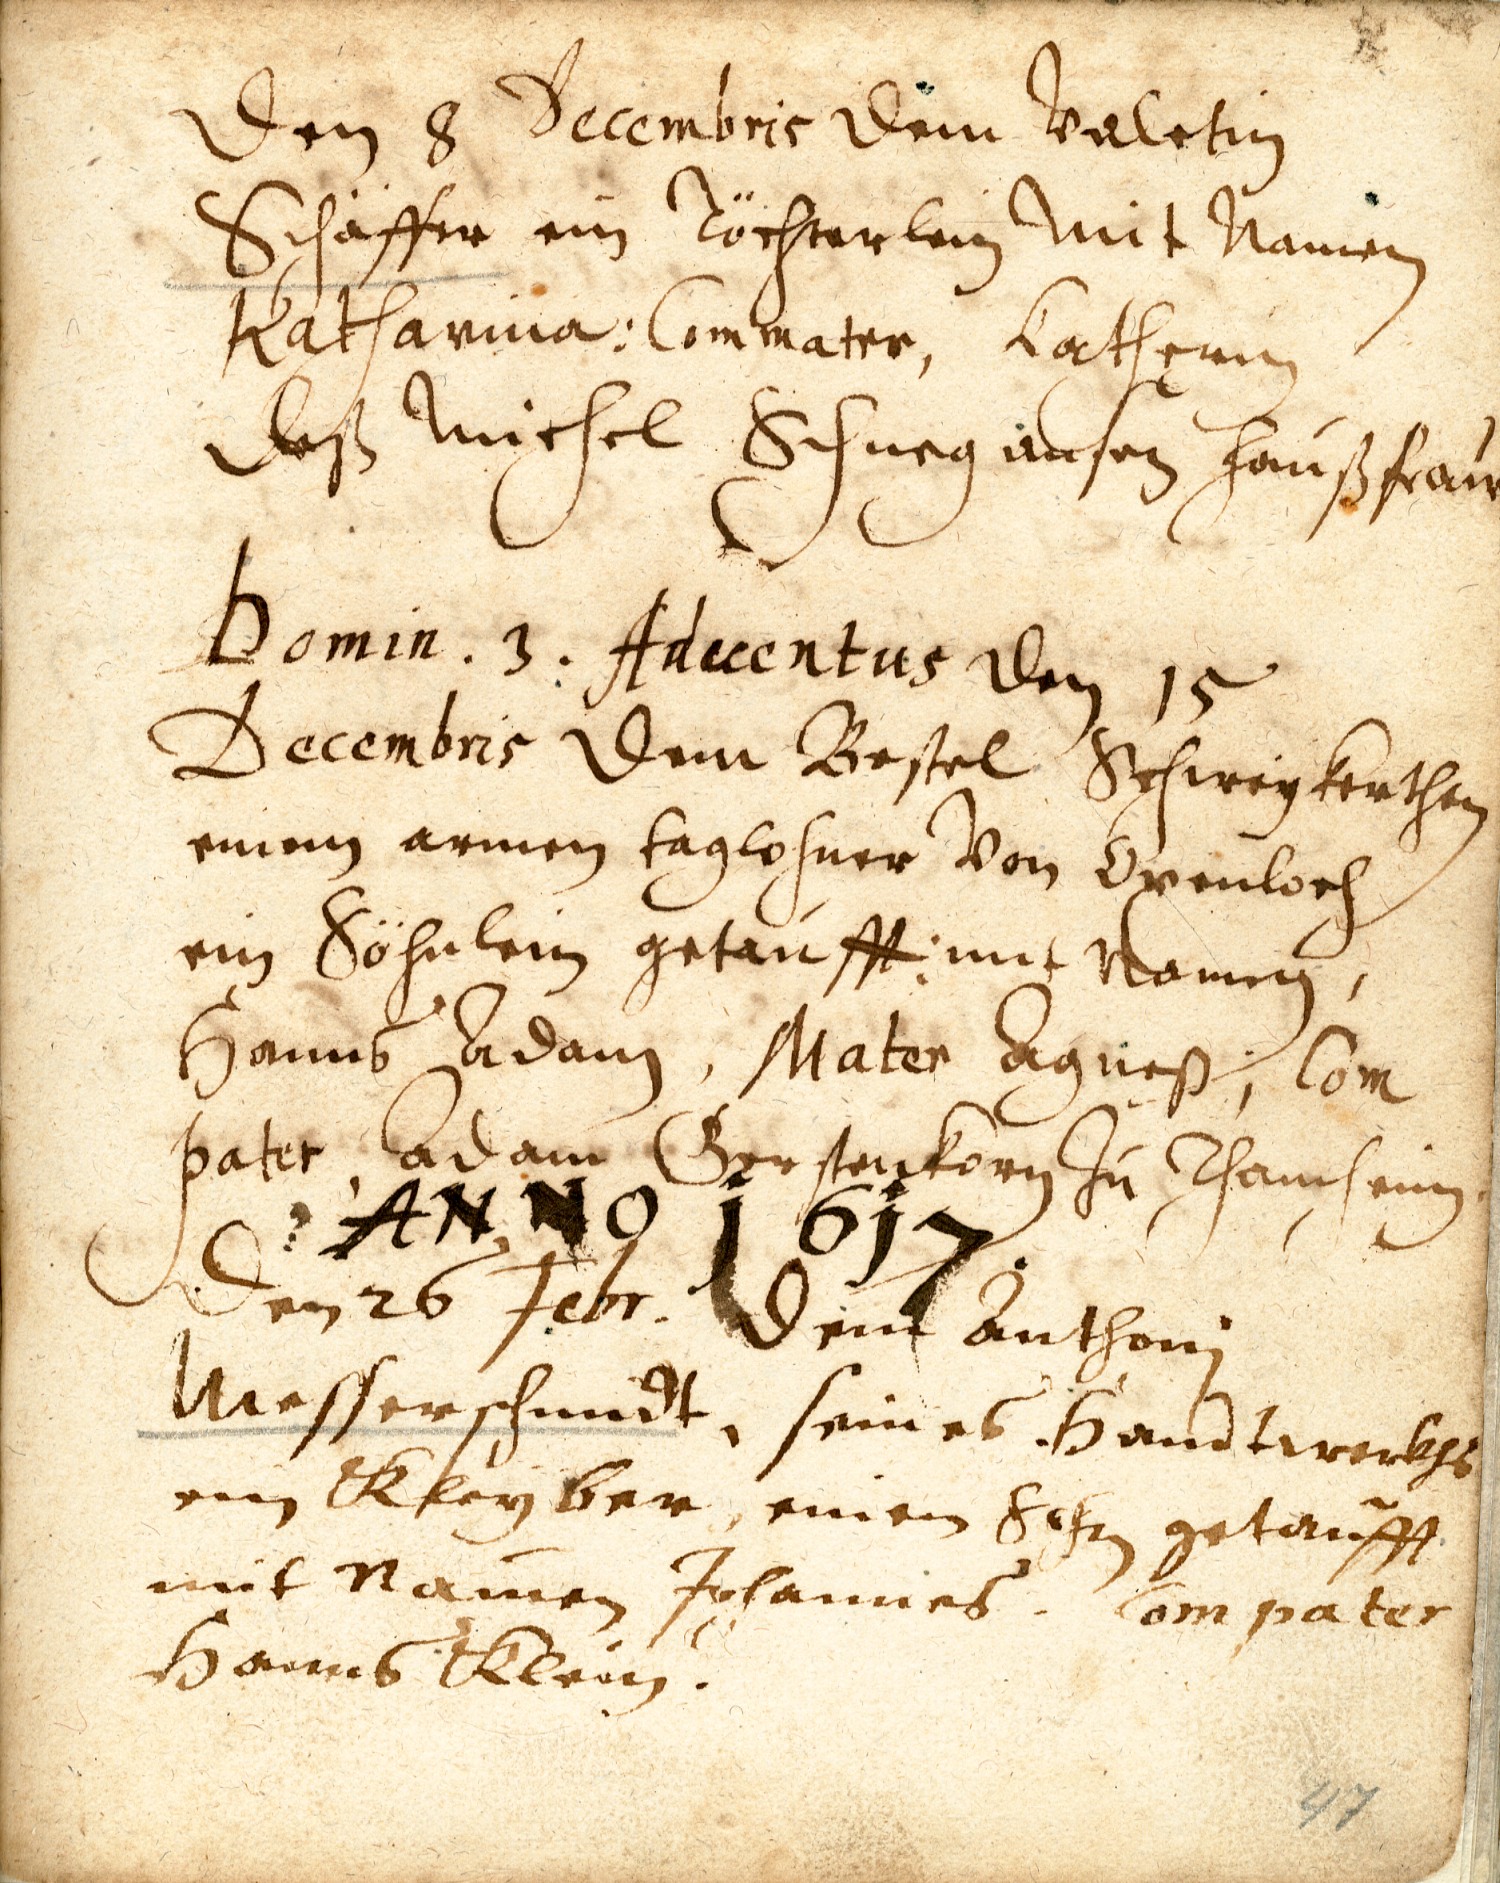 Den 8 Decembris dem Valetin
Schäffer ein Töchterlein mit Namen
Katharina: Commater, Kathein
deß Michel Schnegansen haußfraw
Domin. 3. Adventus den 15
Decembris dem Bestel Schweykerthen
einem armen taglohner von
ein Söhnlein getaufft: mit Namen,
Hanns Adam, Mater Agneß, Com
pater, Adam Gerstenkorn zu
ANNO 1617.
Den 26 Febr. dem Anthonj
Messerschmidt, seines Handtwerkhs
ein Kleyber, einen Sohn getaufft
mit Namen Johannes. Compater
Hanns Klein.
47